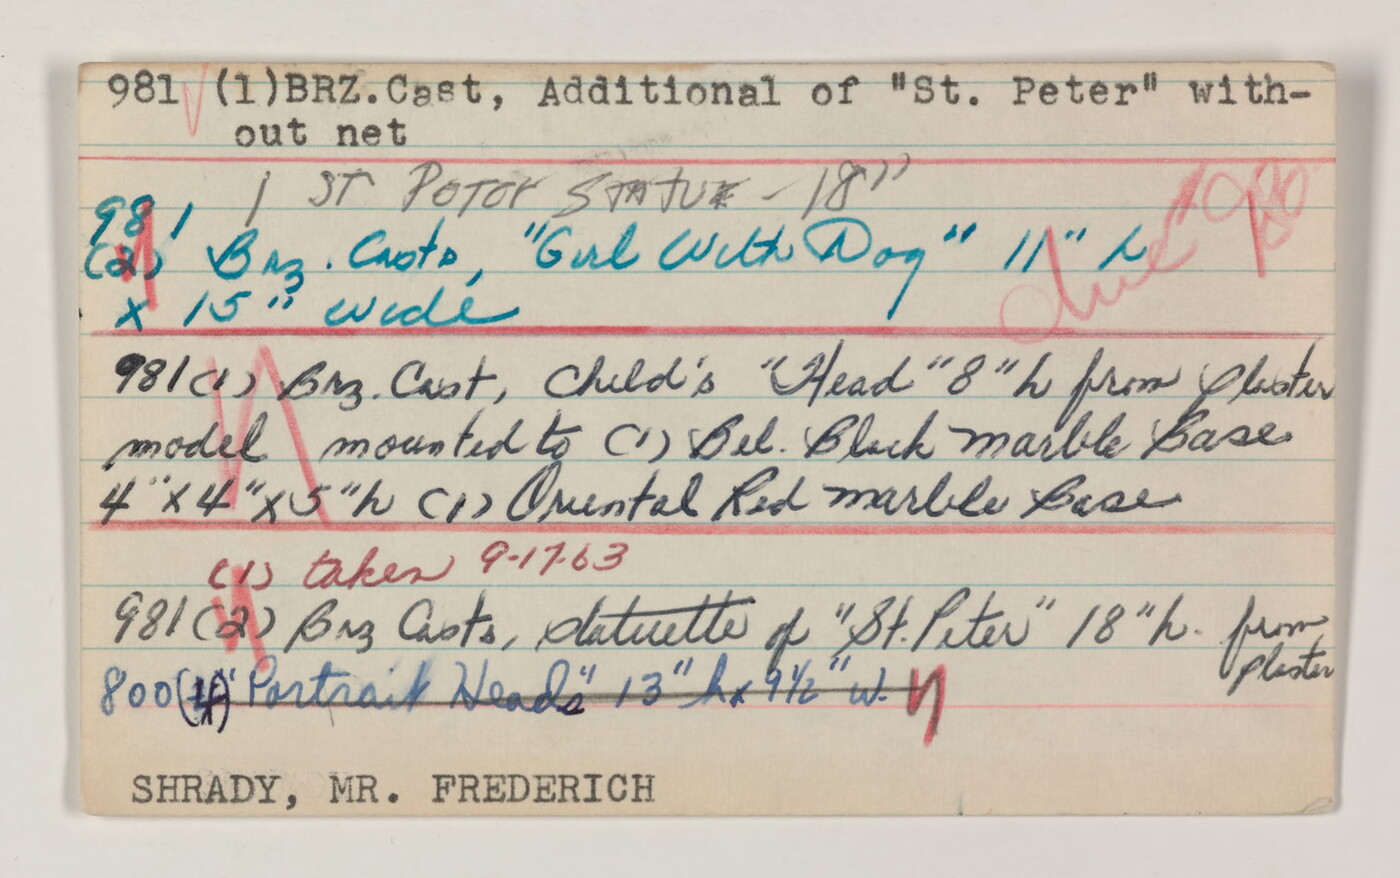 981 (1)BRZ.Cast, Additional of "St. Peter" with-
out net
1 ST PETER STATUE - 18"
981
(2) Brz. Casts, "Girl With Dog" 11" h
x 15" wide
981 (1) Brz. Cast, Child's "Head" 8" h from plaster
model mounted to (1) Bel. Black marble Base
4" x 4" x 5" h (1) Oriental Red marble Base
(1) taken 9-17-63
981 (2) Brz Casts, statuette of "St. Peter" 18" h. from
plaster
800 (4) "Portrait Heads" 13" h x 9 1/2" w.
SHRADY, MR. FREDERICH